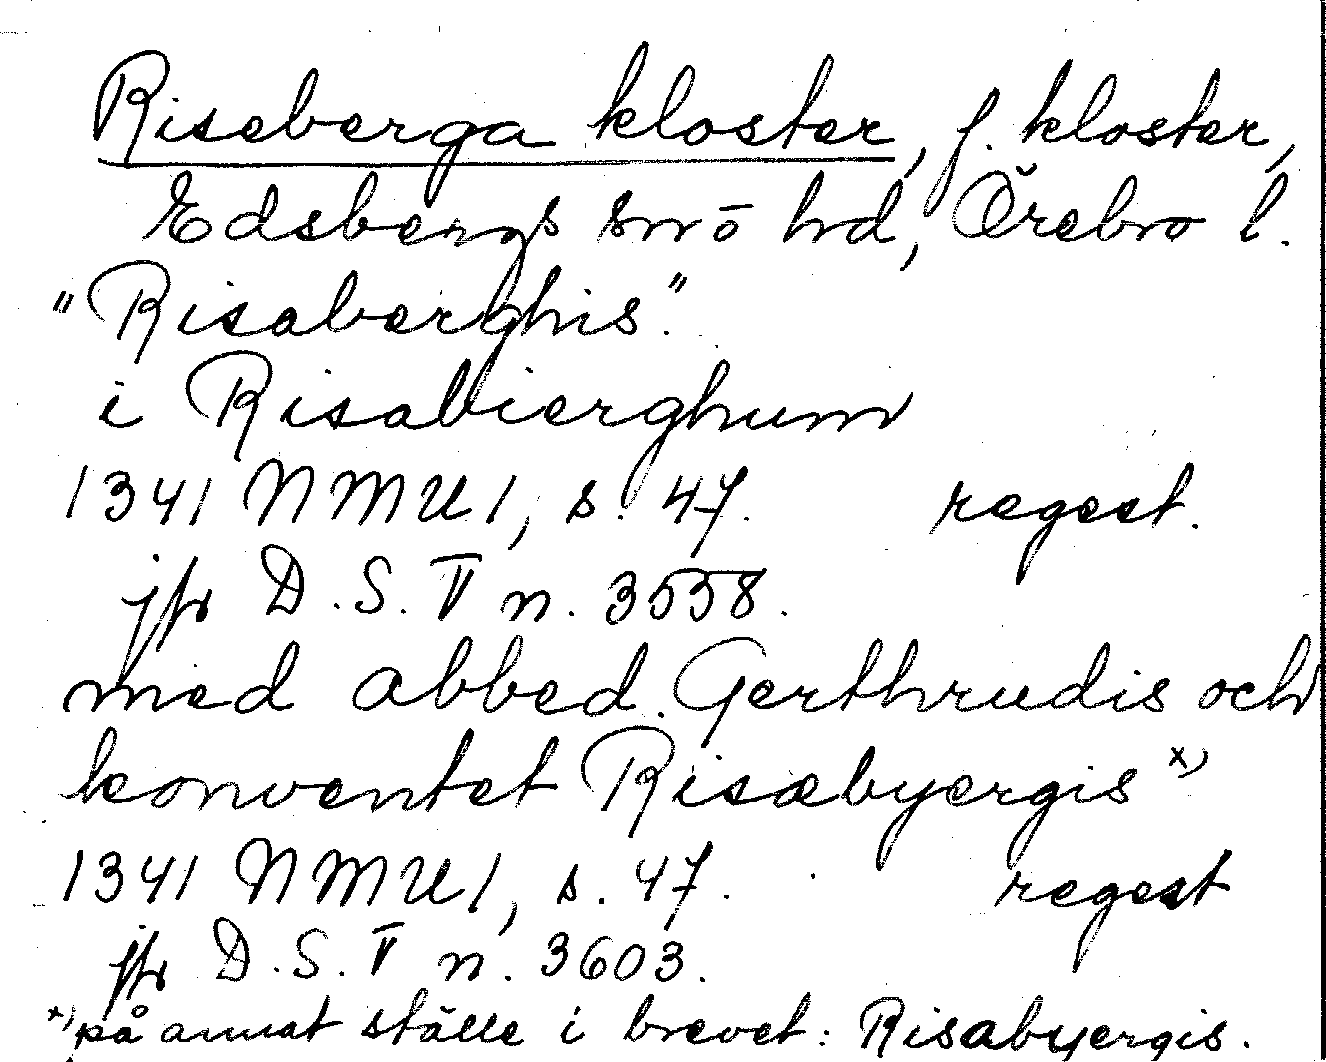 Riseberga kloster, f. kloster,
Edsbergs sn o hd, Örebro l.
"Risaberghis".
i Risabierghum
1341 NMU1, s. 47. regest.
jfr D.S. V n. 3558.
med abbed. Gerthrudis och
konventet Risæbyergis x)
1341 NMU1, s. 47. regest
jfr D.S. V n. 3603.
x) på annat ställe i brevet: Risabyergis.